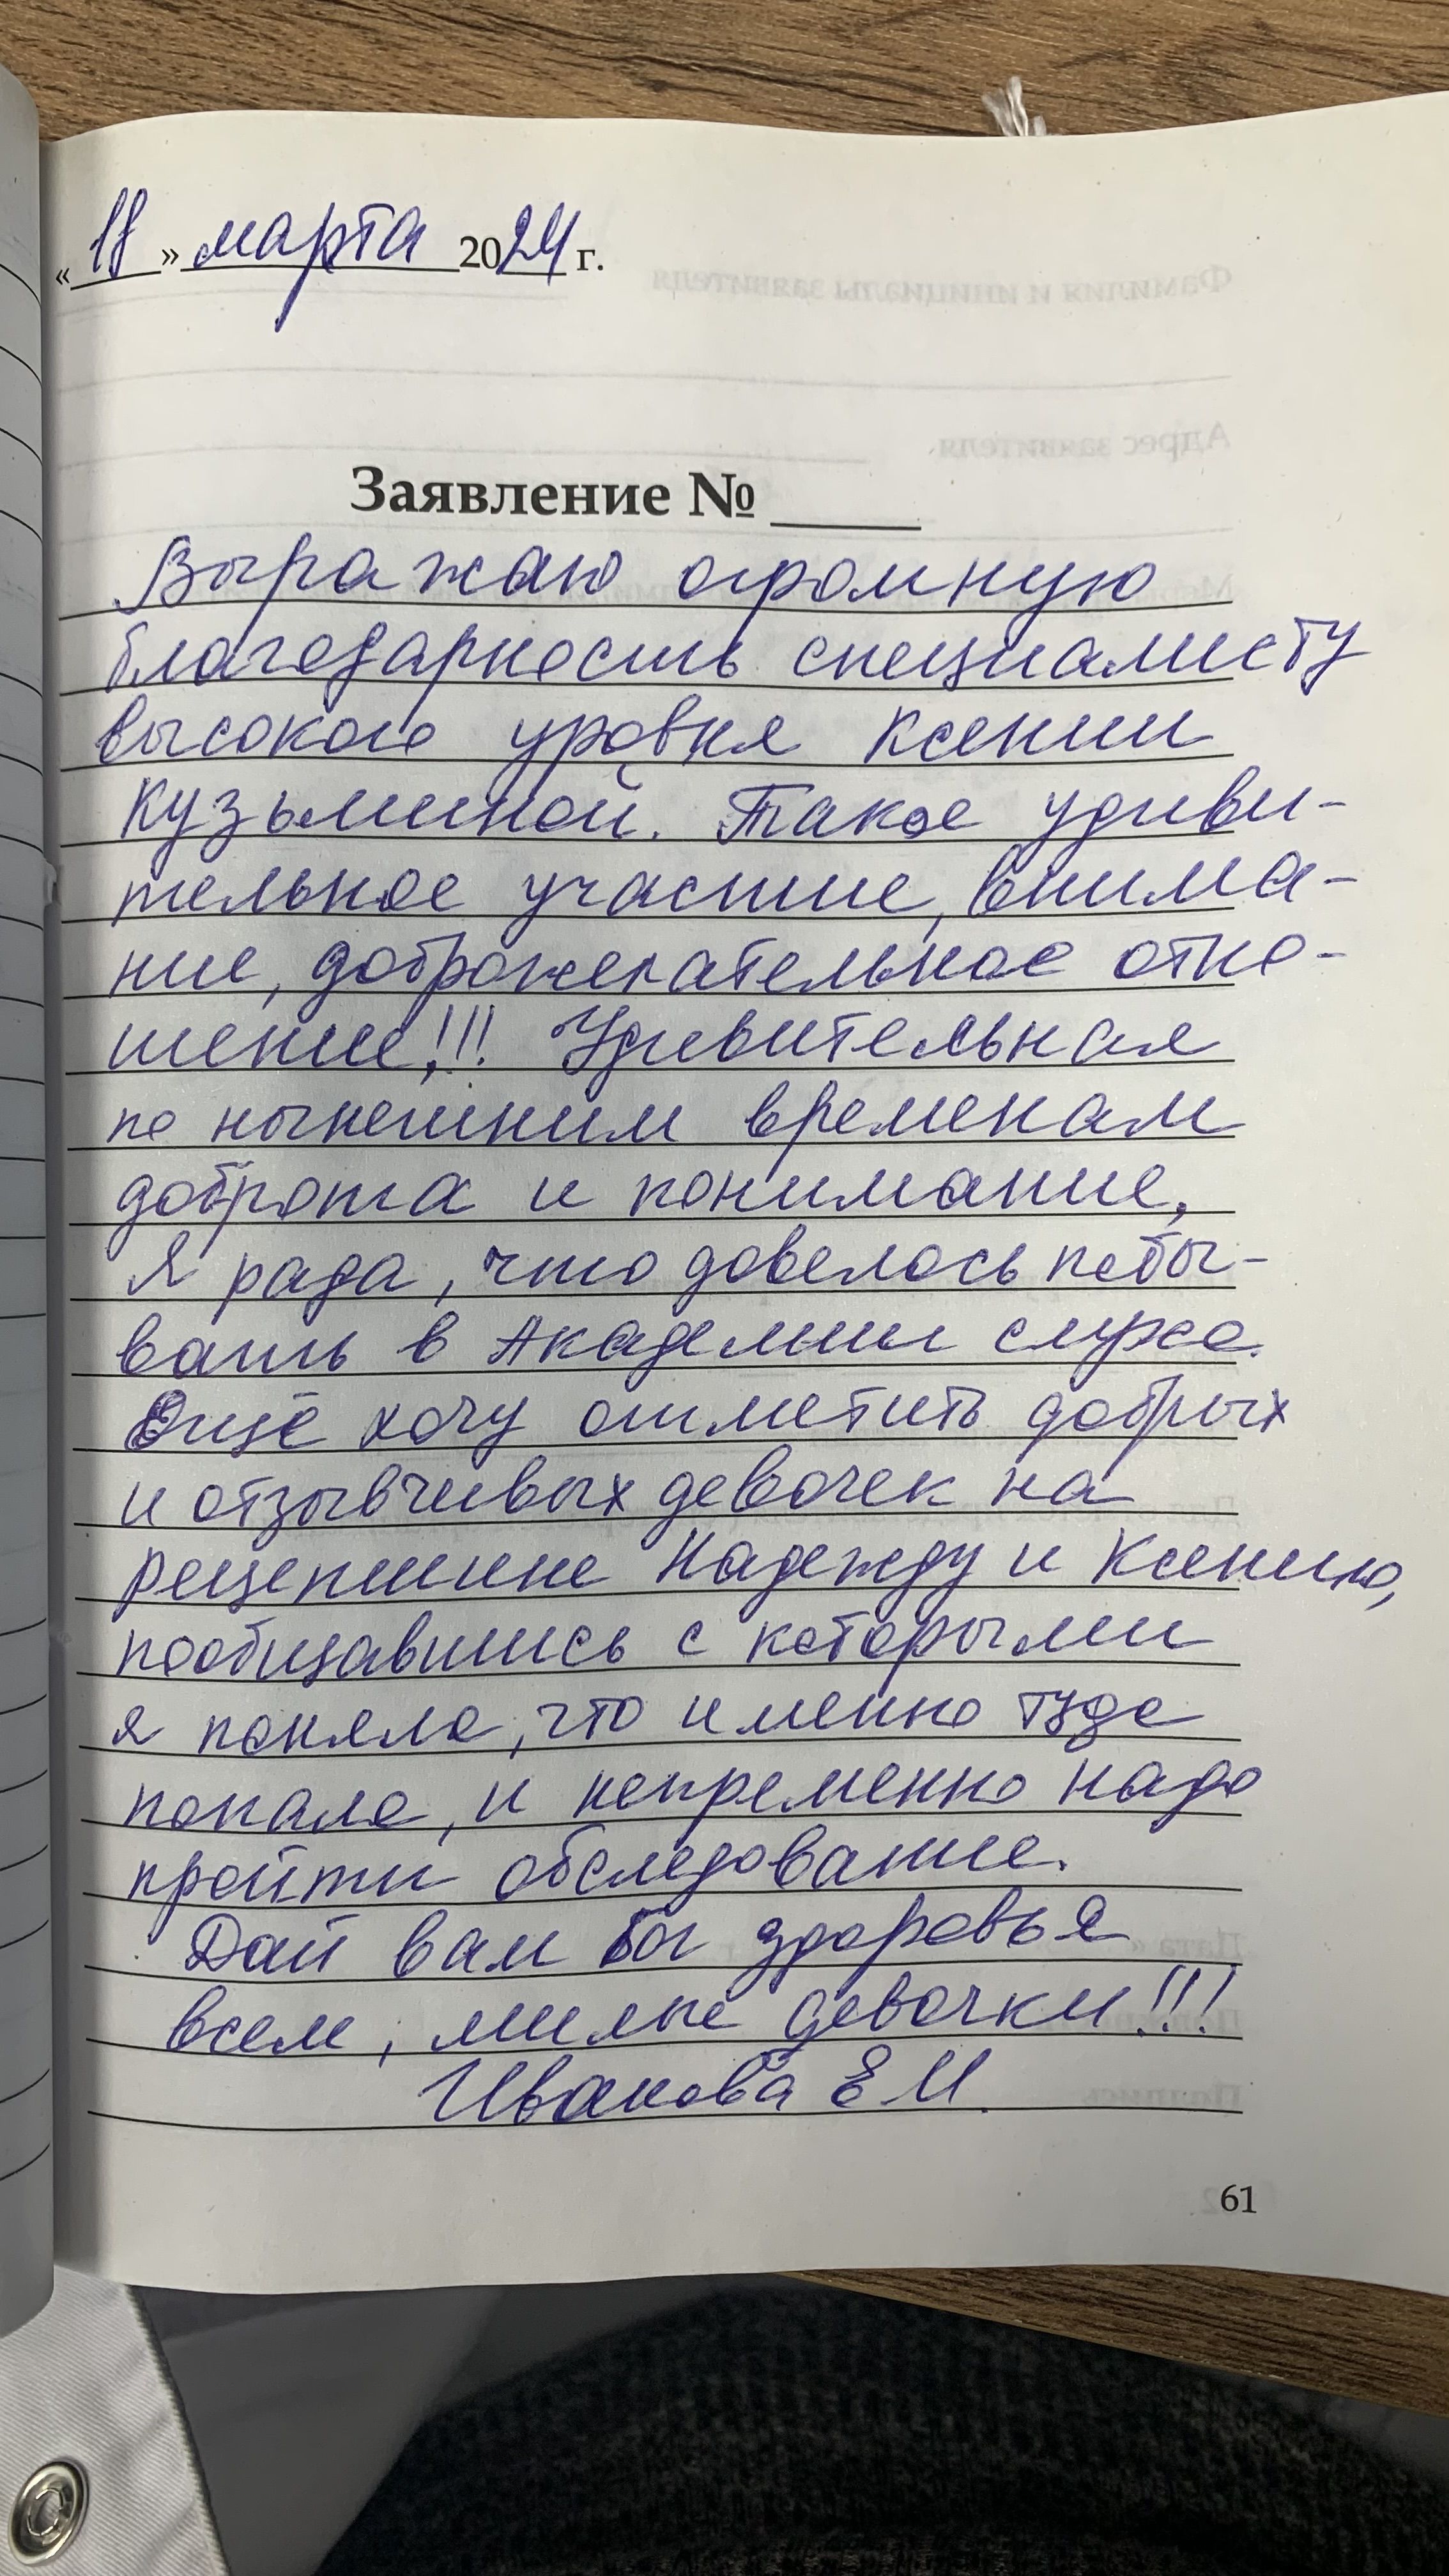 «18» марта 2024 г.
Заявление № ____
Выражаю огромную
благодарность специалисту
высокого уровня Ксении
Кузьминой. Такое удиви-
тельное участие, внима-
ние, доброжелательное отно-
шение!!! Удивительная
по нынешним временам
доброта и понимание.
Я рада, что довелось побы-
вать в Академии слуха.
Ещё хочу отметить добрых
и отзывчивых девочек на
рецепшине Надежду и Ксению,
пообщавшись с которыми
я поняла, что именно туда
попала, и непременно надо
пройти обследование.
Дай вам Бог здоровья
всем, милые девочки!!!
Иванова Е И.
61